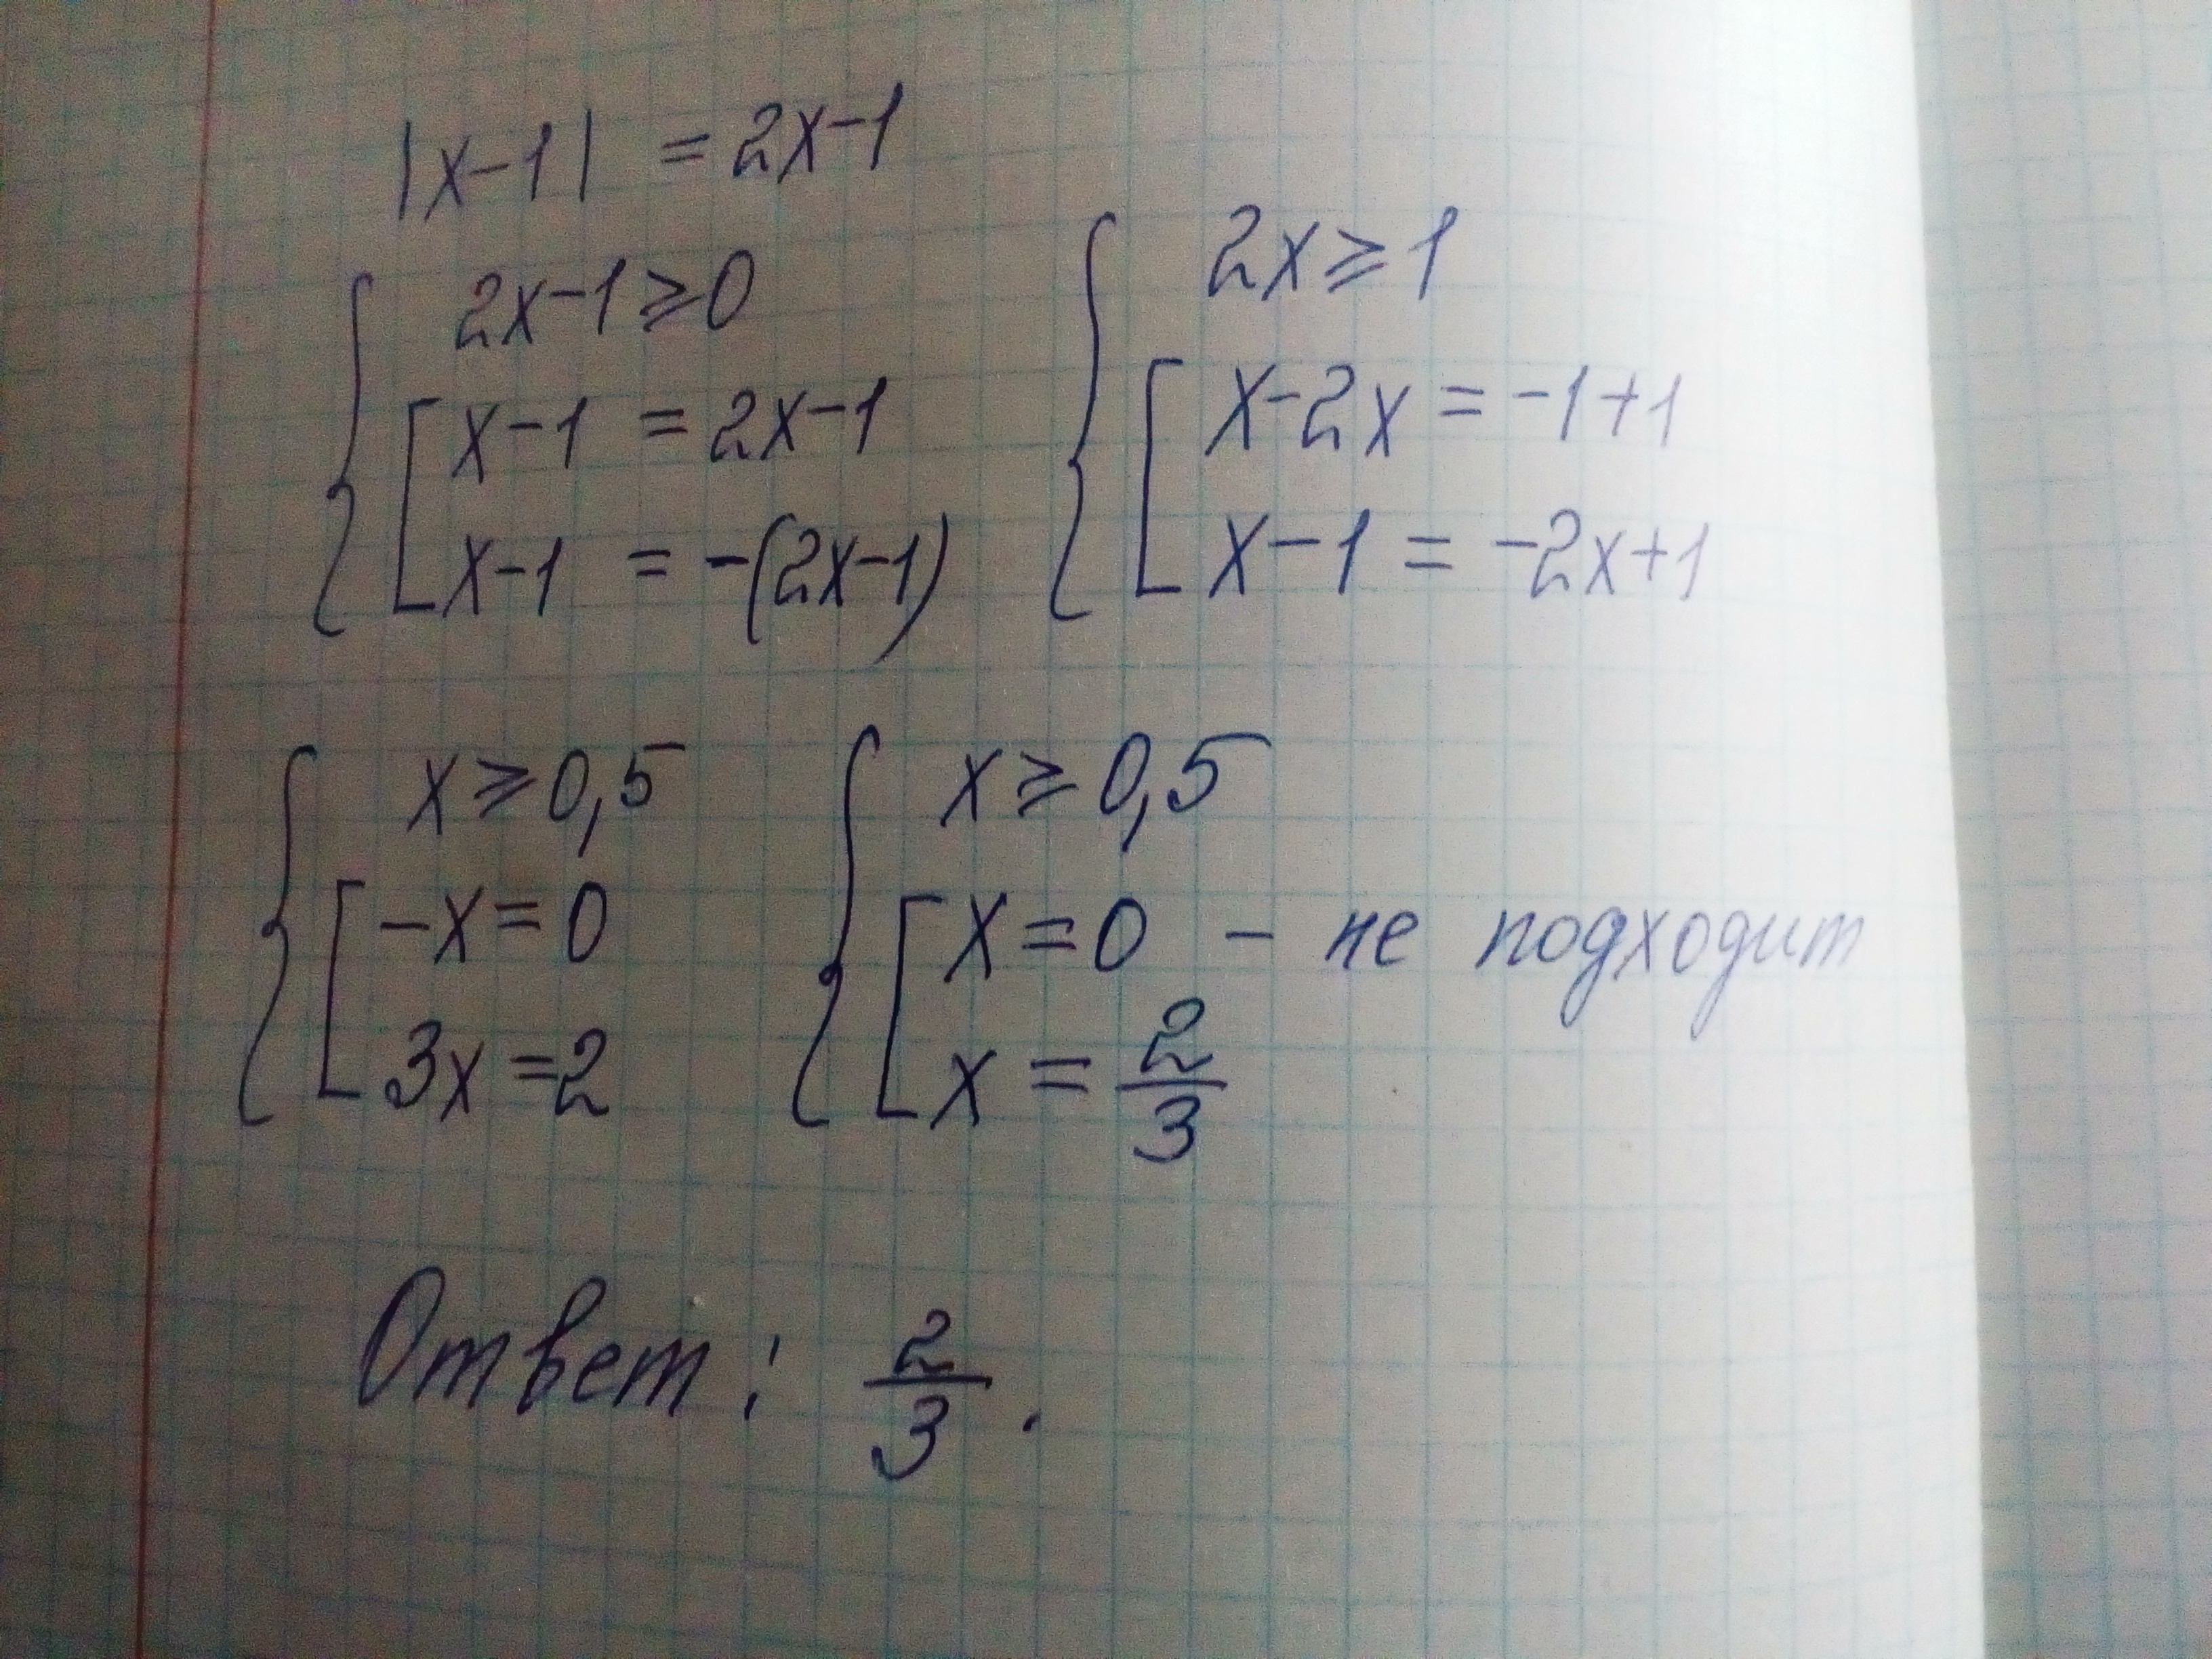 |x-1| = 2x-1
2x-1⩾0
x-1 = 2x-1
x-1 = -(2x-1)
2x⩾1
x-2x = -1+1
x-1 = -2x+1
x⩾0,5
-x=0
3x=2
x⩾0,5
x=0 - не подходит
x = 2/3
Ответ: 2/3.